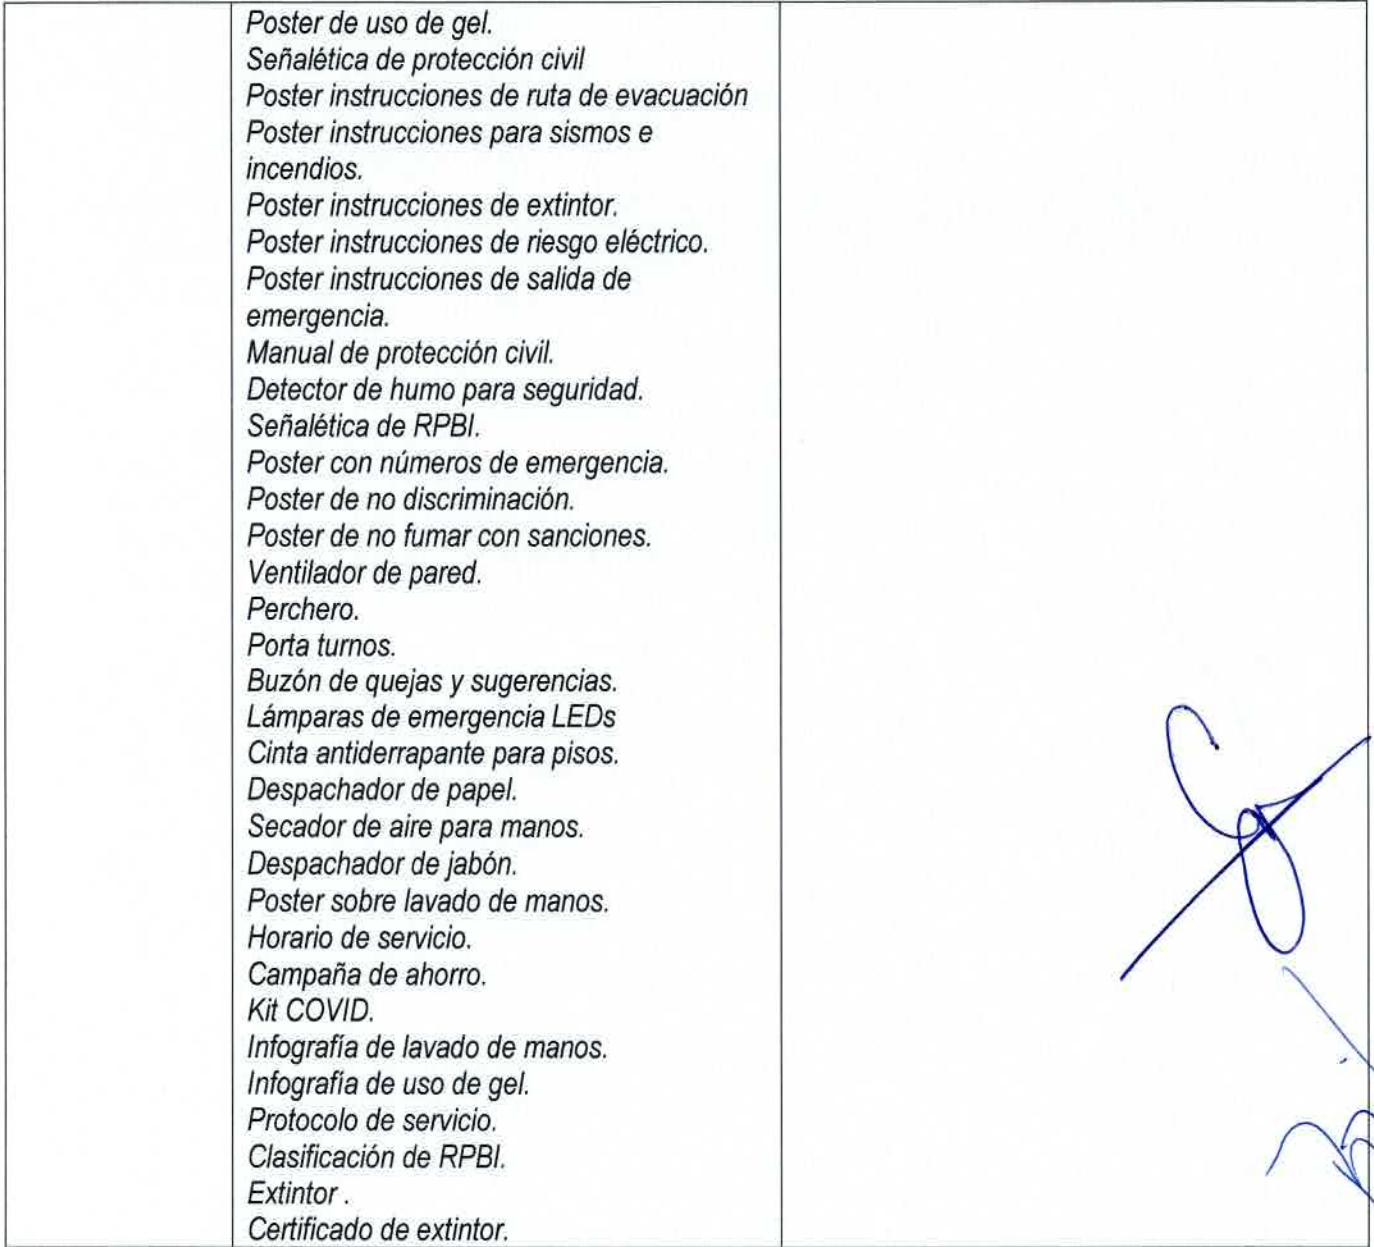 Poster de uso de gel.
Señalética de protección civil
Poster instrucciones de ruta de evacuación
Poster instrucciones para sismos e
incendios.
Poster instrucciones de extintor.
Poster instrucciones de riesgo eléctrico.
Poster instrucciones de salida de
emergencia.
Manual de protección civil.
Detector de humo para seguridad.
Señalética de RPBI.
Poster con números de emergencia.
Poster de no discriminación.
Poster de no fumar con sanciones.
Ventilador de pared.
Perchero.
Porta turnos.
Buzón de quejas y sugerencias.
Lámparas de emergencia LEDs
Cinta antiderrapante para pisos.
Despachador de papel.
Secador de aire para manos.
Despachador de jabón.
Poster sobre lavado de manos.
Horario de servicio.
Campaña de ahorro.
Kit COVID.
Infografía de lavado de manos.
Infografía de uso de gel.
Protocolo de servicio.
Clasificación de RPBI.
Extintor .
Certificado de extintor.